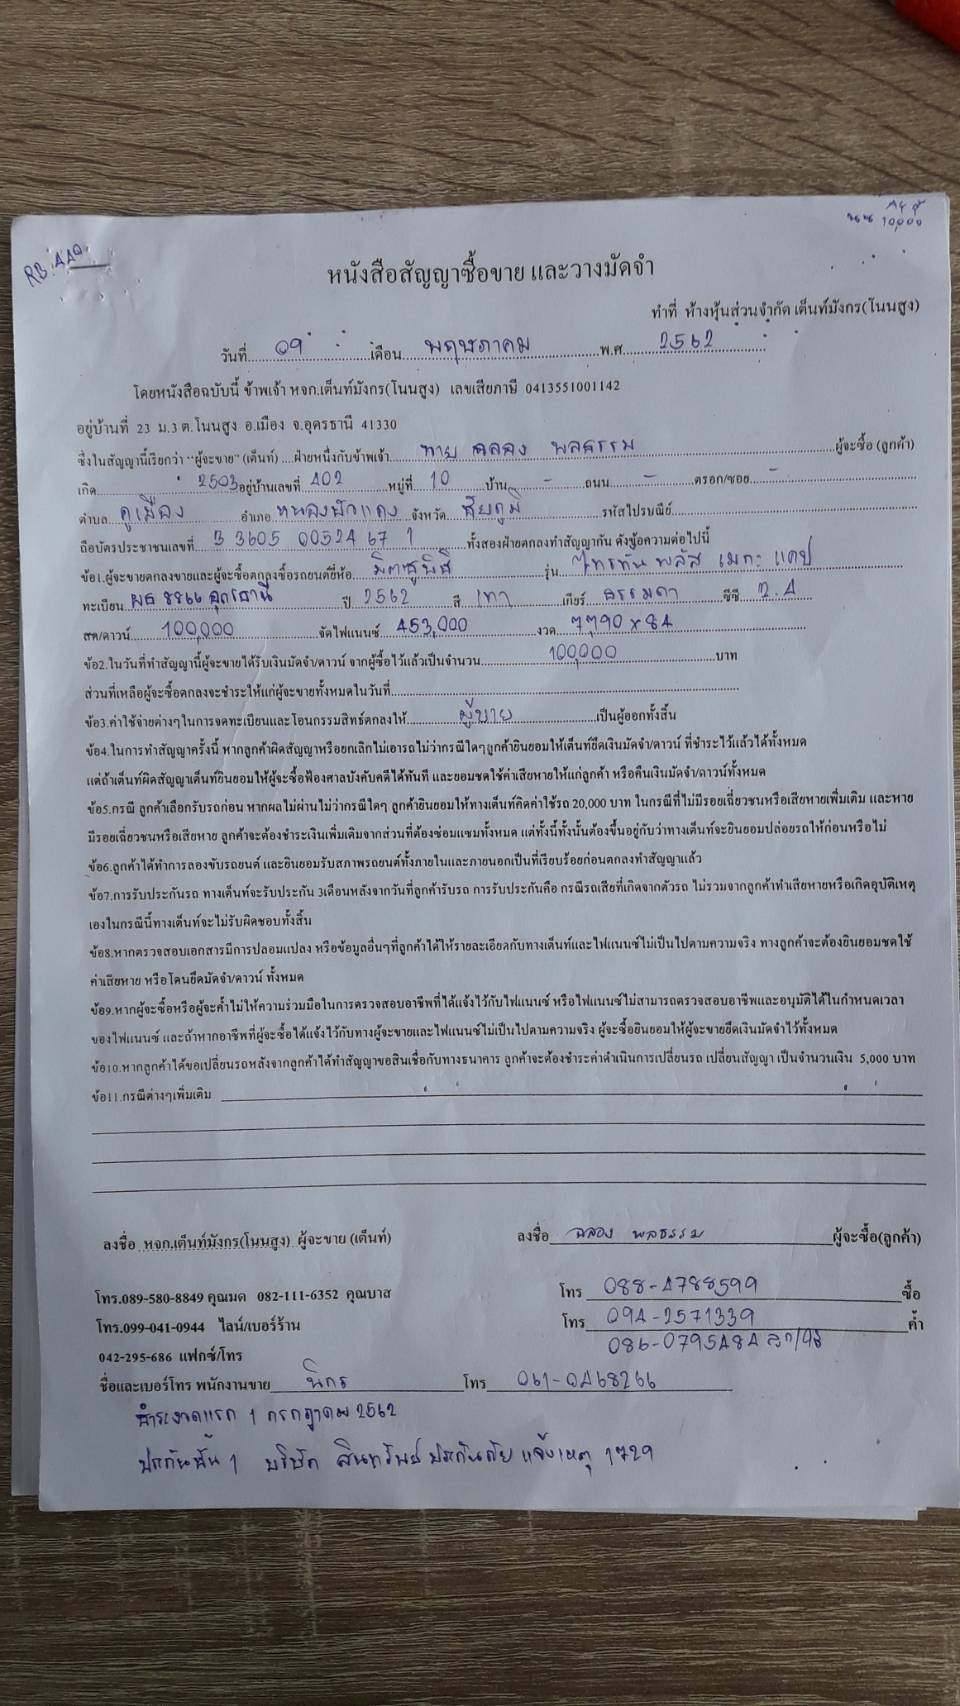 RB.440
นน 10,000
หนังสือสัญญาซื้อขาย และวางมัดจำ
ทำที่ ห้างหุ้นส่วนจำกัด เต็นท์มังกร(โนนสูง)
วันที่ 09 เดือน พฤษภาคม พ.ศ. 2562
โดยหนังสือฉบับนี้ ข้าพเจ้า หจก.เต็นท์มังกร(โนนสูง) เลขเสียภาษี 0413551001142
อยู่บ้านที่ 23 ม.3 ต.โนนสูง อ.เมือง จ.อุดรธานี 41330
ซึ่งในสัญญานี้เรียกว่า "ผู้จะขาย" (เต็นท์) ...ฝ่ายหนึ่งกับข้าพเจ้า นาย ฉลอง พลธรรม ผู้จะซื้อ (ลูกค้า)
เกิด 2503 อยู่บ้านเลขที่ 402 หมู่ที่ 10 บ้าน - ถนน - ตรอก/ซอย -
ตำบล คูเมือง อำเภอ หนองบัวแดง จังหวัด ชัยภูมิ รหัสไปรษณีย์
ถือบัตรประชาชนเลขที่ 3 3605 00524 67 1 ทั้งสองฝ่ายตกลงทำสัญญากัน ดังข้อความต่อไปนี้
ข้อ1.ผู้จะขายตกลงขายและผู้จะซื้อตกลงซื้อรถยนต์ยี่ห้อ มิตซูบิชิ รุ่น ไทรทัน พลัส เมกะ แคป
ทะเบียน ผธ 8866 อุดรธานี ปี 2562 สี เทา เกียร์ ธรรมดา ซีซี 2.4
สด/ดาวน์ 100,000 จัดไฟแนนซ์ 453,000 งวด 7,790 x 84
ข้อ2.ในวันที่ทำสัญญานี้ผู้จะขายได้รับเงินมัดจำ/ดาวน์ จากผู้ซื้อไว้แล้วเป็นจำนวน 100,000 บาท
ส่วนที่เหลือผู้จะซื้อตกลงจะชำระให้แก่ผู้จะขายทั้งหมดในวันที่
ข้อ3.ค่าใช้จ่ายต่างๆในการจดทะเบียนและโอนกรรมสิทธ์ตกลงให้ ผู้ขาย เป็นผู้ออกทั้งสิ้น
ข้อ4.ในการทำสัญญาครั้งนี้ หากลูกค้าผิดสัญญาหรือยกเลิกไม่เอารถไม่ว่ากรณีใดๆลูกค้ายินยอมให้เต็นท์ยึดเงินมัดจำ/ดาวน์ ที่ชำระไว้แล้วได้ทั้งหมด
แต่ถ้าเต็นท์ผิดสัญญาเต็นท์ยินยอมให้ผู้จะซื้อฟ้องศาลบังคับคดีได้ทันที และยอมชดใช้ค่าเสียหายให้แก่ลูกค้า หรือคืนเงินมัดจำ/ดาวน์ทั้งหมด
ข้อ5.กรณี ลูกค้าเลือกรับรถก่อน หากผลไม่ผ่านไม่ว่ากรณีใดๆ ลูกค้ายินยอมให้ทางเต็นท์คิดค่าใช้รถ 20,000 บาท ในกรณีที่ไม่มีรอยเฉี่ยวชนหรือเสียหายเพิ่มเติม และหาย
มีรอยเฉี่ยวชนหรือเสียหาย ลูกค้าจะต้องชำระเงินเพิ่มเติมจากส่วนที่ต้องซ่อมแซมทั้งหมด แต่ทั้งนี้ทั้งนั้นต้องขึ้นอยู่กับว่าทางเต็นท์จะยินยอมปล่อยรถให้ก่อนหรือไม่
ข้อ6.ลูกค้าได้ทำการลองขับรถยนต์ และยินยอมรับสภาพรถยนต์ทั้งภายในและภายนอกเป็นที่เรียบร้อยก่อนตกลงทำสัญญาแล้ว
ข้อ7.การรับประกันรถ ทางเต็นท์จะรับประกัน 3เดือนหลังจากวันที่ลูกค้ารับรถ การรับประกันคือ กรณีรถเสียที่เกิดจากตัวรถ ไม่รวมจากลูกค้าทำเสียหายหรือเกิดอุบัติเหตุ
เองในกรณีนี้ทางเต็นท์จะไม่รับผิดชอบทั้งสิ้น
ข้อ8.หากตรวจสอบเอกสารมีการปลอมแปลง หรือข้อมูลอื่นๆที่ลูกค้าได้ให้รายละเอียดกับทางเต็นท์และไฟแนนซ์ไม่เป็นไปตามความจริง ทางลูกค้าจะต้องยินยอมชดใช้
ค่าเสียหาย หรือโดนยึดมัดจำ/ดาวน์ ทั้งหมด
ข้อ9.หากผู้จะซื้อหรือผู้จะค้ำไม่ให้ความร่วมมือในการตรวจสอบอาชีพที่ได้แจ้งไว้กับไฟแนนซ์ หรือไฟแนนซ์ไม่สามารถตรวจสอบอาชีพและอนุมัติได้ในกำหนดเวลา
ของไฟแนนซ์ และถ้าหากอาชีพที่ผู้จะซื้อได้แจ้งไว้กับทางผู้จะขายและไฟแนนซ์ไม่เป็นไปตามความจริง ผู้จะซื้อยินยอมให้ผู้จะขายยึดเงินมัดจำไว้ทั้งหมด
ข้อ10.หากลูกค้าได้ขอเปลี่ยนรถหลังจากลูกค้าได้ทำสัญญาขอสินเชื่อกับทางธนาคาร ลูกค้าจะต้องชำระค่าดำเนินการเปลี่ยนรถ เปลี่ยนสัญญา เป็นจำนวนเงิน 5,000 บาท
ข้อ11.กรณีต่างๆเพิ่มเติม
ลงชื่อ หจก.เต็นท์มังกร(โนนสูง) ผู้จะขาย (เต็นท์) ลงชื่อ ฉลอง พลธรรม ผู้จะซื้อ(ลูกค้า)
โทร.089-580-8849 คุณมด 082-111-6352 คุณบาส โทร 088-4788599 ซื้อ
โทร.099-041-0944 ไลน์/เบอร์ร้าน โทร 094-2571339 ค้ำ
042-295-686 แฟกซ์/โทร 086-0795484
ชื่อและเบอร์โทร พนักงานขาย นิกร โทร 061-0468266
ชำระงวดแรก 1 กรกฎาคม 2562
ประกันชั้น 1 บริษัท สินทรัพย์ ประกันภัย แจ้งเหตุ 1729